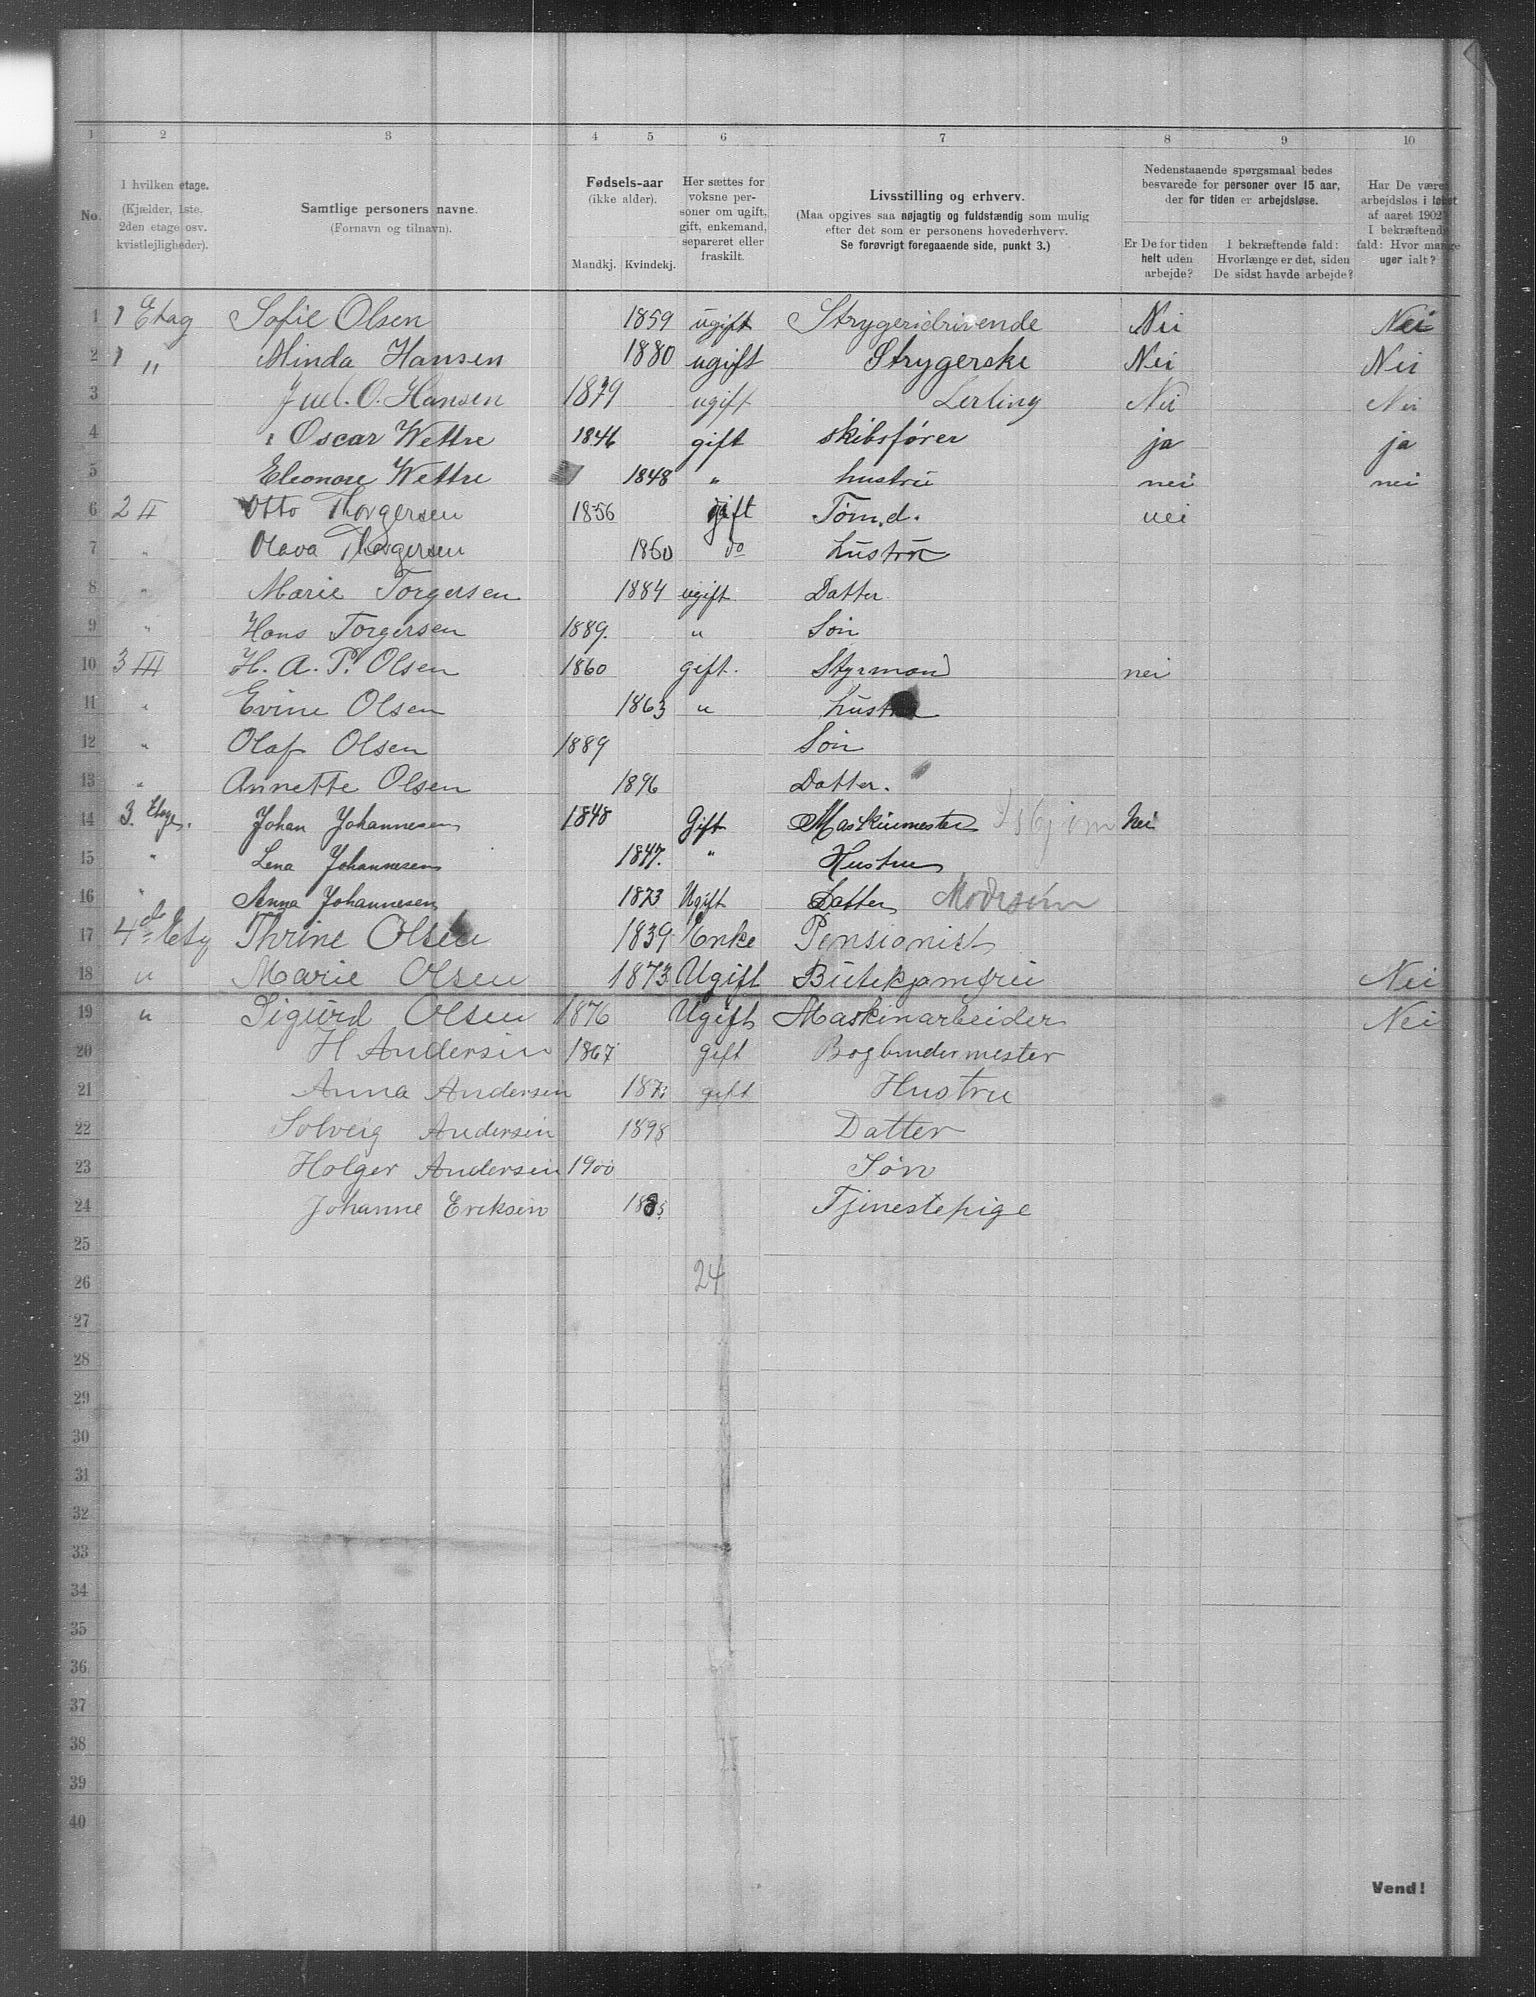 1 2 3 4 5 6 7 8 9 10
No.
I hvilken etage.
(Kjælder, 1ste, 2den etage osv. kvistlejligheder).
Samtlige personers navne.
(Fornavn og tilnavn).
Fødsels-aar
(ikke alder).
Mandkj. Kvindekj.
Her sættes for voksne personer om ugift, gift, enkemand, separeret eller fraskilt.
Livsstilling og erhverv.
(Maa opgives saa nøjagtig og fuldstændig som mulig
efter det som er personens hovederhverv.
Se forøvrigt foregaaende side, punkt 3.)
Nedenstaaende spørgsmaal bedes
besvarede for personer over 15 aar,
der for tiden er arbejdsløse.
Er De for tiden helt uden arbejde?
I bekræftende fald: Hvorlænge er det, siden De sidst havde arbejde?
Har De været arbejdsløs i løbet af aaret 1902? I bekræftende fald: Hvor mange uger ialt?
1 1 Etag Sofie Olsen 1859 ugift Strygeridrivende Nei Nei
2 1 " Minda Hansen 1880 ugift Strygerske Nei Nei
3 Juel. O. Hansen 1879 ugift Lerling Nei Nei
4 Oscar Wettre 1846 gift skibsfører ja ja
5 Eleonore Wettre 1848 " hustru nei nei
6 2 II Otto Thorgersen 1856 gift Tøm.d. nei
7 " Olava Thorgersen 1860 do hustru
8 " Marie Torgersen 1884 ugift Datter
9 " Hans Torgersen 1889. " Søn
10 3 III H. A. P. Olsen 1860 gift. Styrmand nei
11 " Evine Olsen 1863 " hustru
12 " Olaf Olsen 1889 Søn
13 " Annette Olsen 1896 Datter.
14 3. Etage. Johan Johannesen 1848 Gift Maskinmester Nei
15 " Lena Johannesen 1847. " Hustru
16 " Anna Johannesen 1873 Ugift Datter
17 4de Etg Thrine Olsen 1839 Enke Pensionist
18 " Marie Olsen 1873 Ugift Butikjomfru Nei
19 " Sigurd Olsen 1876 Ugift Maskinarbeider Nei
20 H Andersen 1867 gift Bogbindermester
21 Anna Andersen gift Hustru
22 Solveig Andersen 1898 Datter
23 Holger Andersen 1900 Søn
24 Johanne Eriksen Tjenestepige
25
26 24
27
28
29
30
31
32
33
34
35
36
37
38
39
40
Vend!